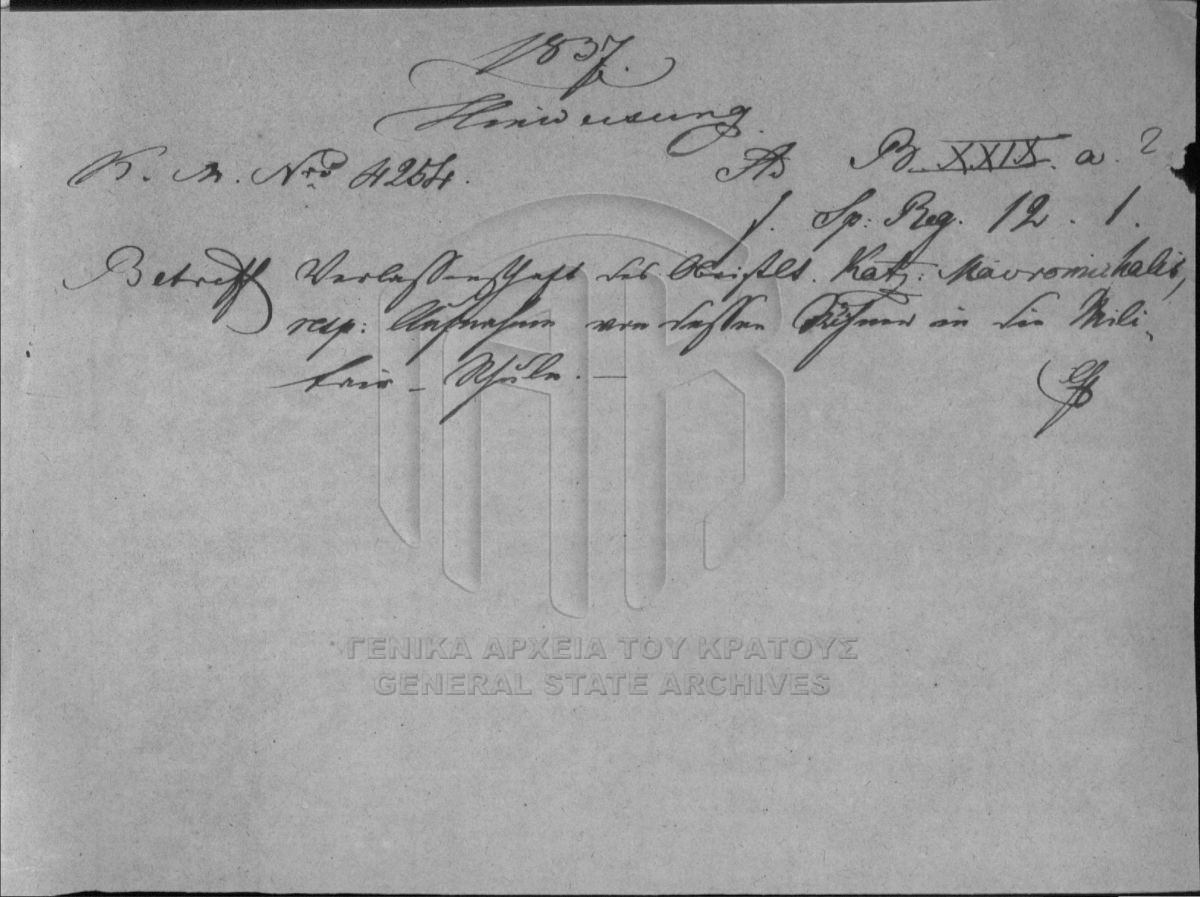 1837.
Hinweisung.
K. M. Nro 4254. Ad B. XXIX. a. 2
f. Sp: Reg. 12. 1.
Betreff Verlassenschaft des Kat: Mavromichalis,
resp: Aufnahme von dessen Söhnen in die Mili-
tair-Schule. —
ΓΕΝΙΚΑ ΑΡΧΕΙΑ ΤΟΥ ΚΡΑΤΟΥΣ
GENERAL STATE ARCHIVES